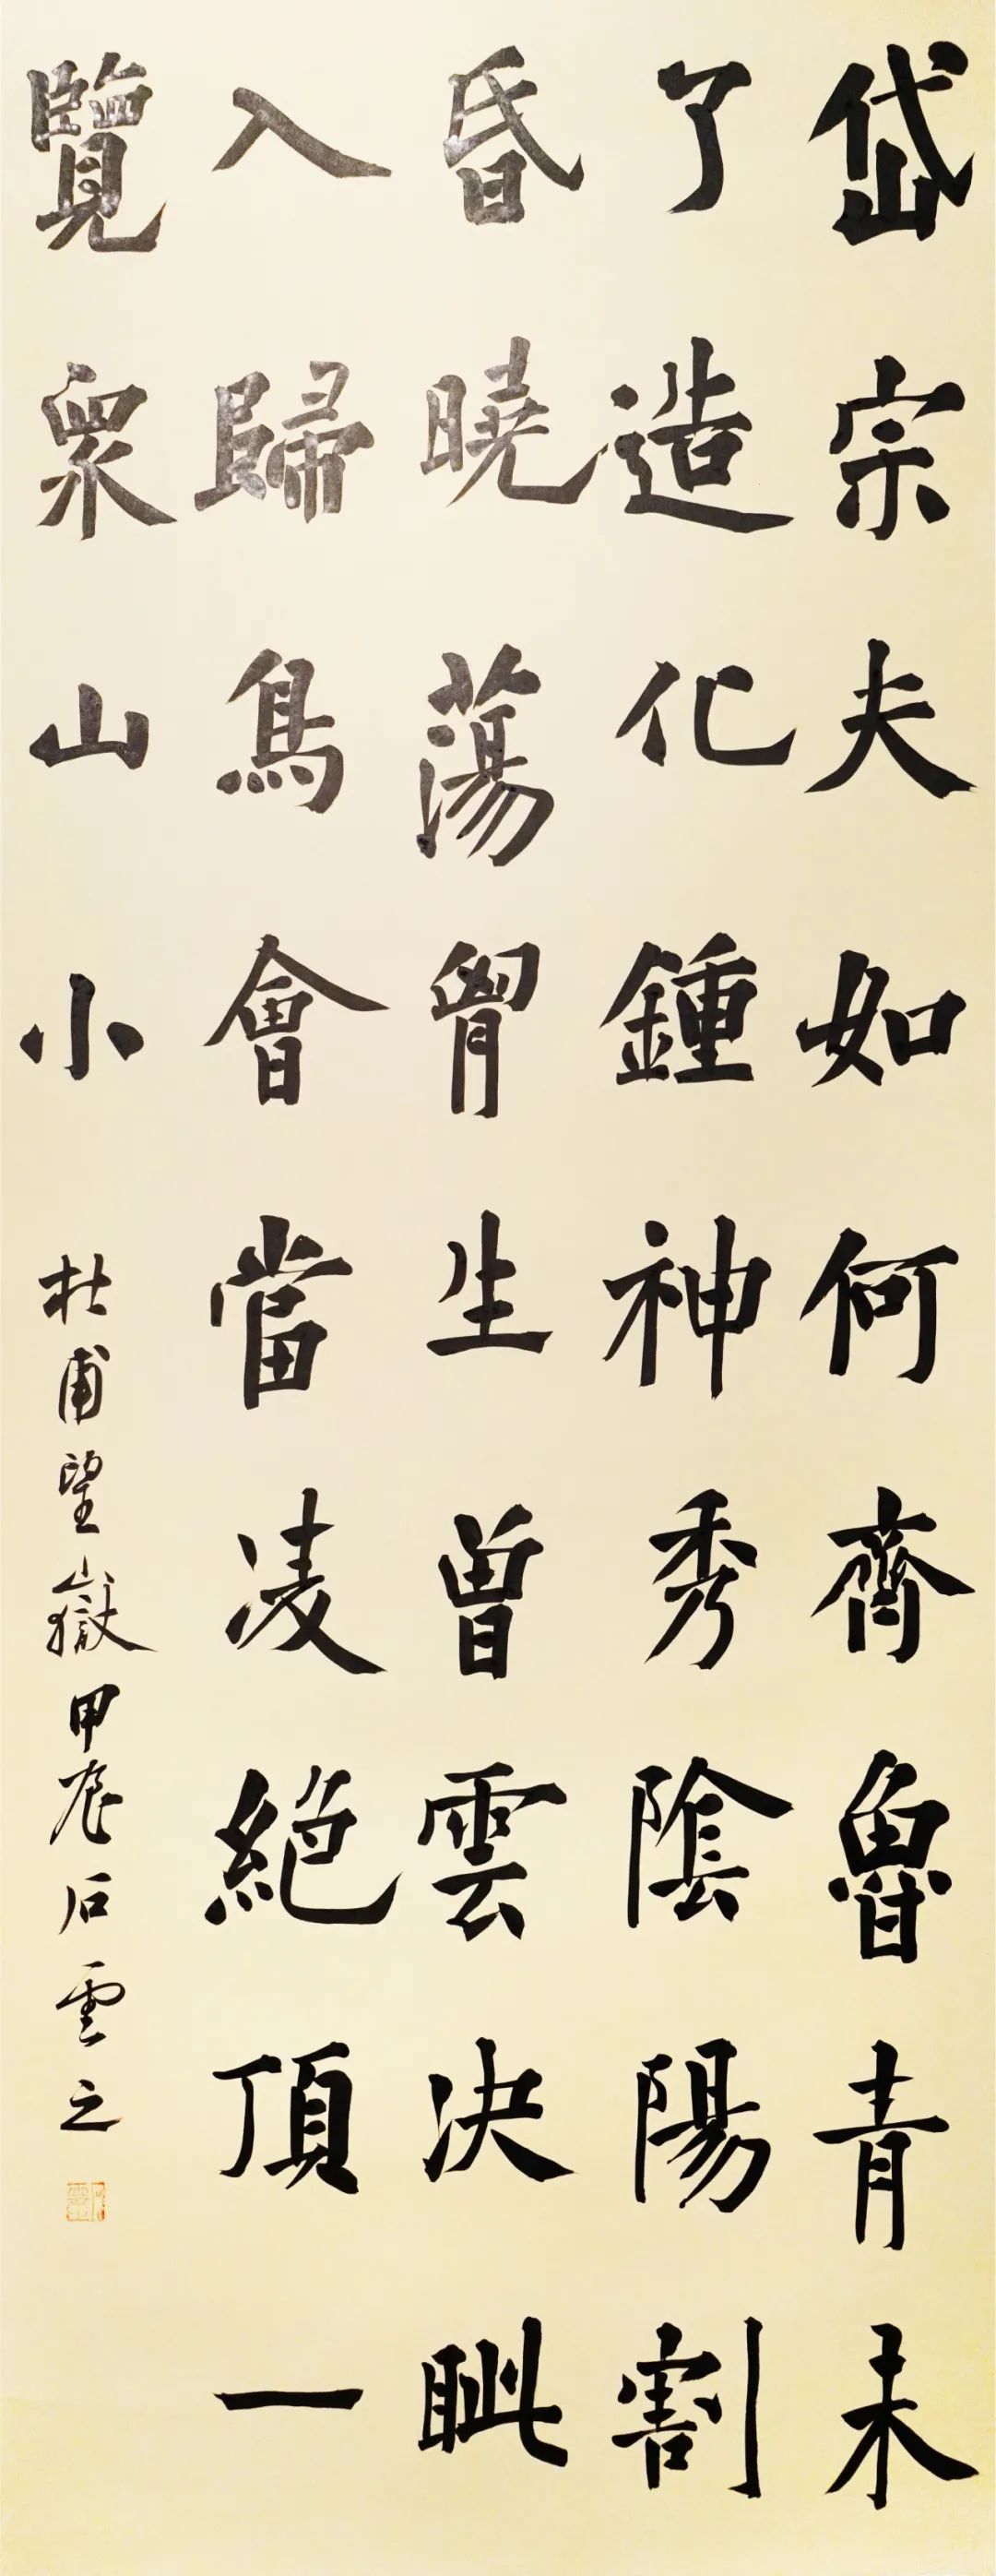 岱宗夫如何齊魯青未
了造化鍾神秀陰陽割
昏曉蕩胷生曾雲決眦
入歸鳥會當凌絕頂一
覽衆山小
杜甫望嶽甲辰石雲之